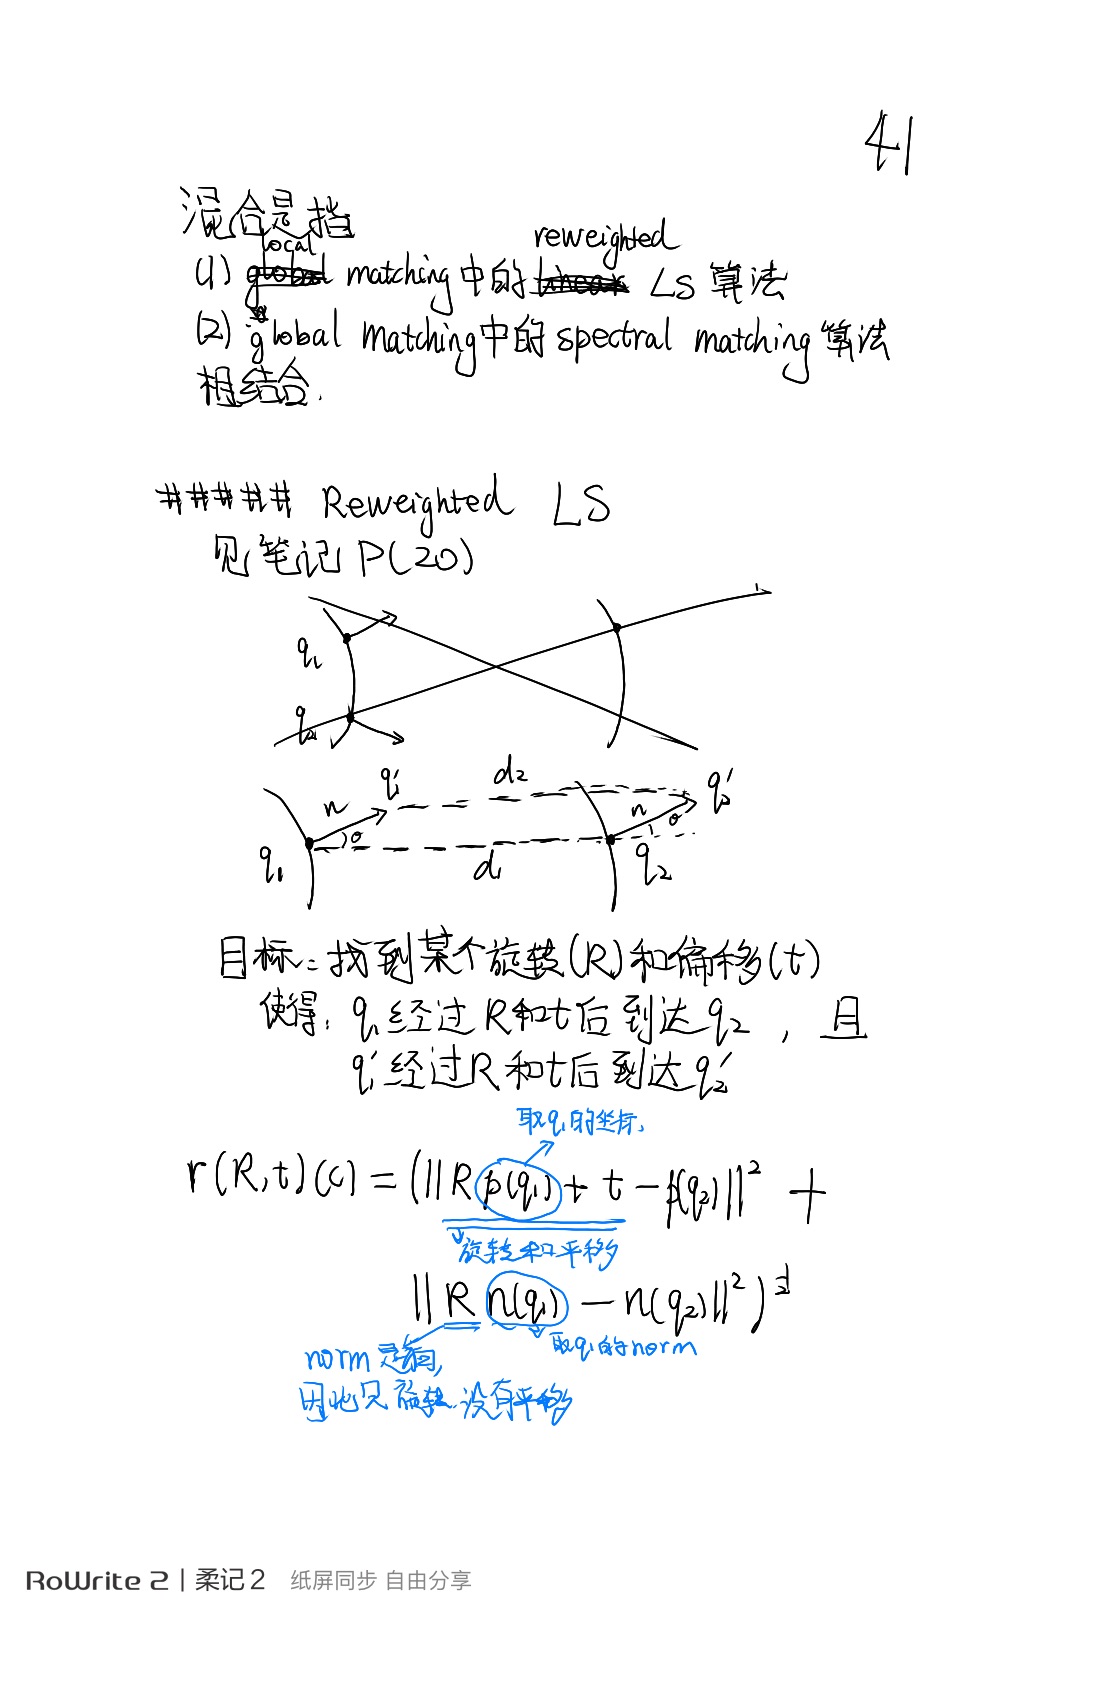 41
混合是指
(1) local matching中的 reweighted LS 算法
(2) global matching中的 spectral matching 算法
相结合.
##### Reweighted LS
见笔记 P(20)
q₁
q₂
q₁' d₂ q₂'
n θ n θ
q₁ d₁ q₂
目标: 找到某个旋转(R)和偏移(t)
使得: q₁经过R和t后到达q₂, 且
q₁'经过R和t后到达q₂'
取q₁的坐标.
r(R,t)(c) = (||R p(q₁) + t - p(q₂)||² +
旋转和平移
||R n(q₁) - n(q₂)||²)^½
取q₁的norm
norm是
因此只旋转.没有平移
RoWrite 2 | 柔记2 纸屏同步 自由分享